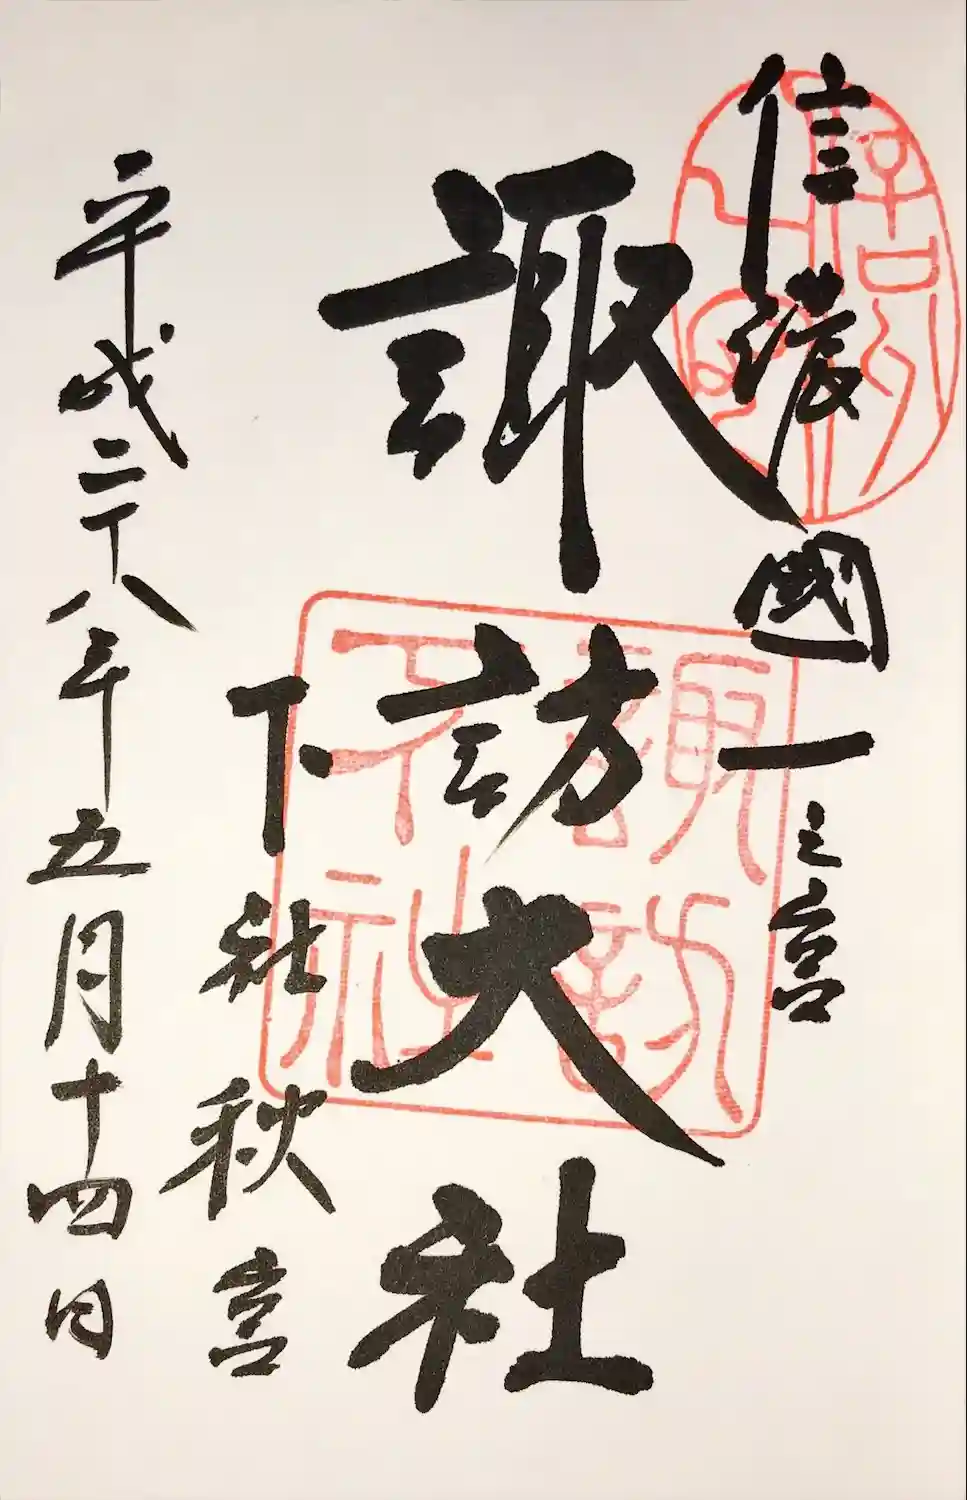 信濃國一之宮
諏訪大社
下社秋宮
平成二十八年五月十四日
諏訪
下社